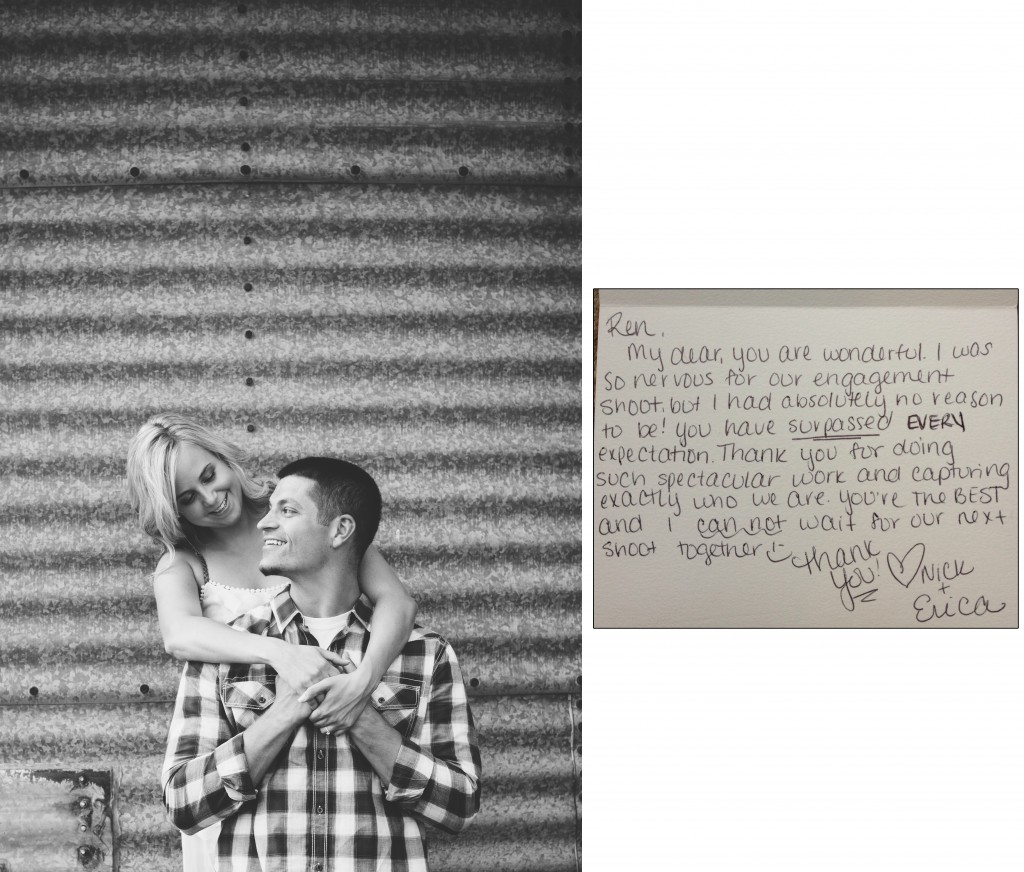 Ren,
My dear, you are wonderful. I was
so nervous for our engagement
shoot, but I had absolutely no reason
to be! You have surpassed EVERY
expectation. Thank you for doing
such spectacular work and capturing
exactly who we are. You're the BEST
and I can not wait for our next
shoot together :) Thank
you! ♡ Nick
+
Erica